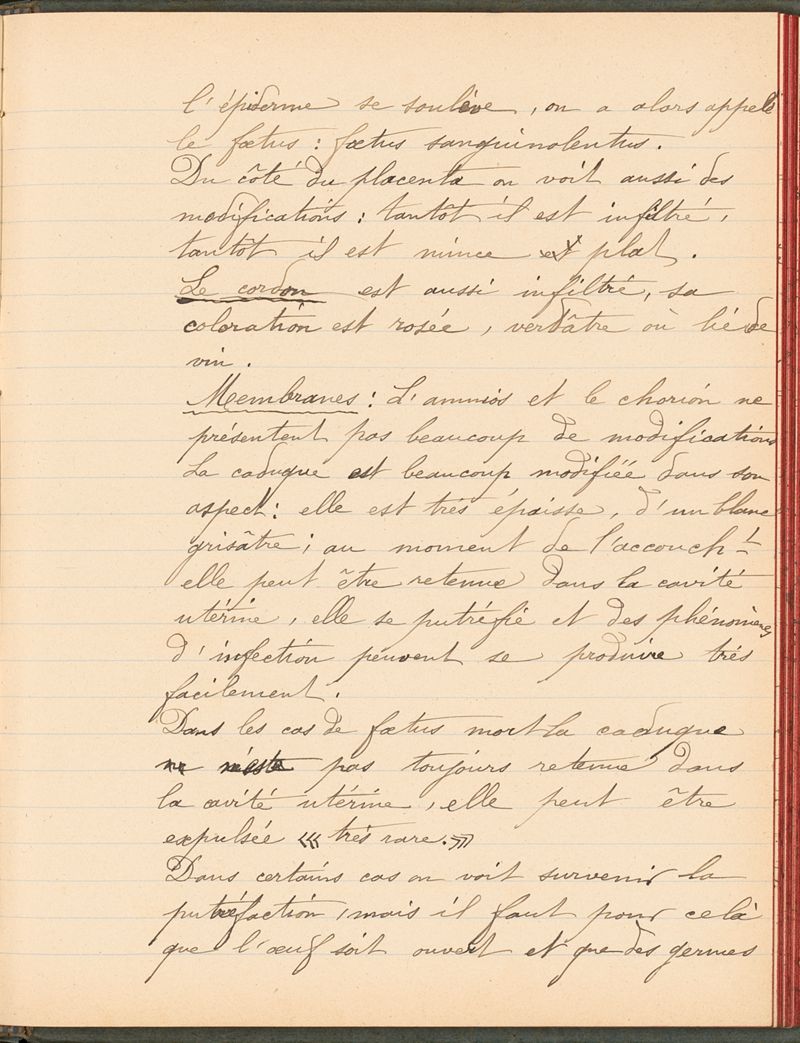 l'épiderme se soulève, on a alors appelé
le fœtus : fœtus sanguinolentus.
Du côté du placenta on voit aussi des
modifications : tantôt il est infiltré,
tantôt il est mince et plat.
Le cordon est aussi infiltré, sa
coloration est rosée, verdâtre où lié de
vin.
Membranes : L'amnios et le chorion ne
présentent pas beaucoup de modifications
La caduque est beaucoup modifiée dans son
aspect : elle est très épaisse, d'un blanc
grisâtre ; au moment de l'accouch-t
elle peut être retenue dans la cavité
utérine, elle se putréfie et des phénomènes
d'infection peuvent se produire très
facilement.
Dans les cas de fœtus mort la caduque
ne reste pas toujours retenue dans
la cavité utérine, elle peut être
expulsée «« très rare. »»
Dans certains cas on voit survenir la
putréfaction, mais il faut pour celà
que l'œuf soit ouvert et que des germes